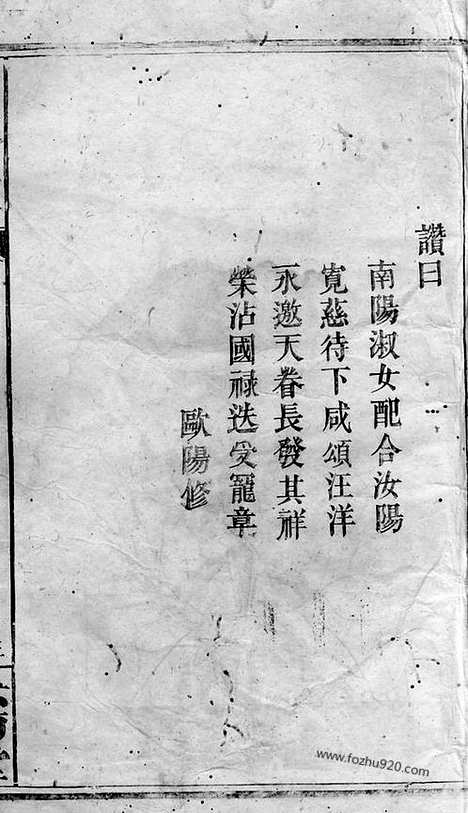 讚曰
南陽淑女配合汝陽
寬慈待下咸頌汪洋
永邀天眷長發其祥
榮沾國祿迭受寵章
歐陽修
www.fozhu920.com